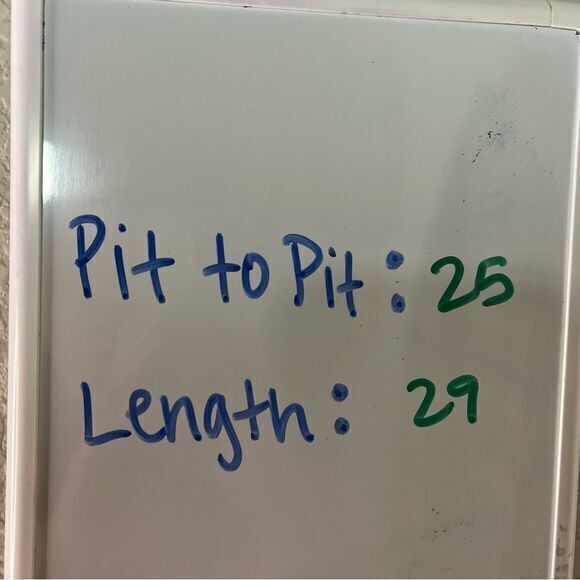 Pit to Pit: 25
Length: 29